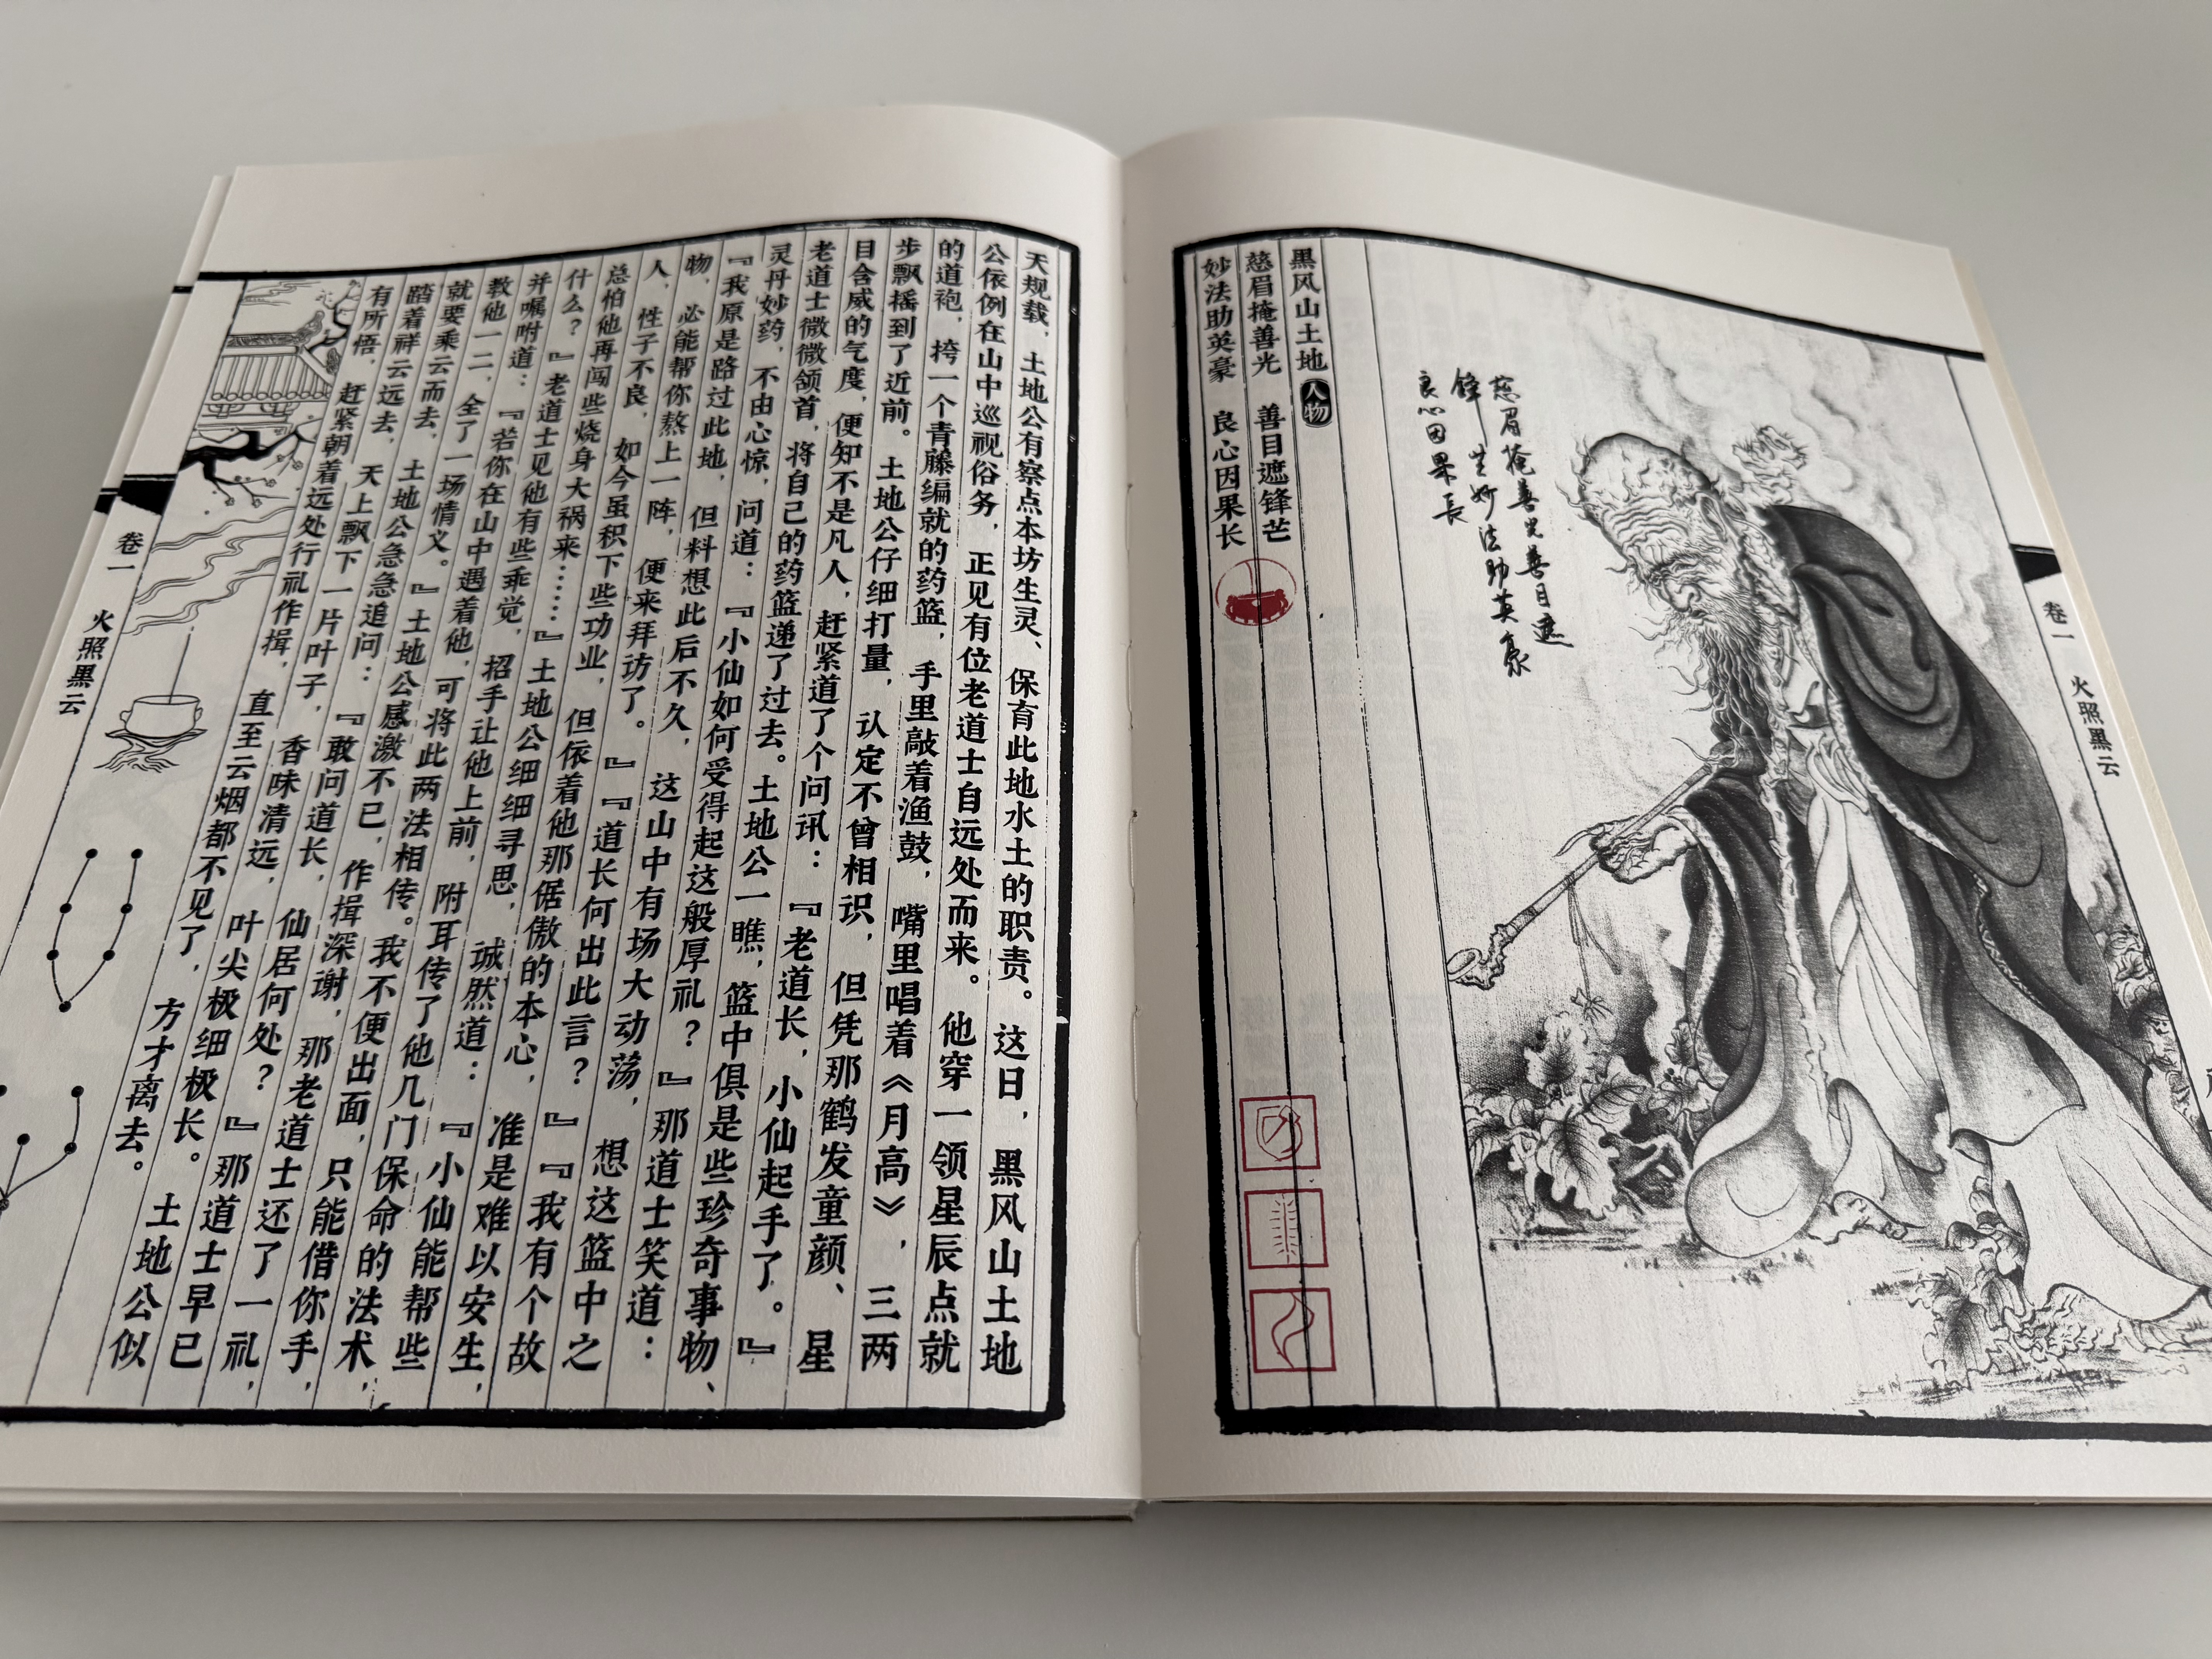 卷一 火照黑云
慈眉掩善光善目遮
锋芒妙法助英豪
良心因果長
黑风山土地 人物
慈眉掩善光 善目遮锋芒
妙法助英豪 良心因果长
天规载，土地公有察点本坊生灵、保育此地水土的职责。这日，黑风山土地
公依例在山中巡视俗务，正见有位老道士自远处而来。他穿一领星辰点就
的道袍，挎一个青藤编就的药篮，手里敲着渔鼓，嘴里唱着《月高》，三两
步飘摇到了近前。土地公仔细打量，认定不曾相识，但凭那鹤发童颜、星
目含威的气度，便知不是凡人，赶紧道了个问讯：『老道长，小仙起手了。』
老道士微微颔首，将自己的药篮递了过去。土地公一瞧，篮中俱是些珍奇事物、
灵丹妙药，不由心惊，问道：『小仙如何受得起这般厚礼？』那道士笑道：
『我原是路过此地，但料想此后不久，这山中有场大动荡，想这篮中之
物，必能帮你熬上一阵，便来拜访了。』『道长何出此言？』『我有个故
人，性子不良，如今虽积下些功业，但依着他那倨傲的本心，准是难以安生，
总怕他再闯些烧身大祸来……』土地公细细寻思，诚然道：『小仙能帮些
什么？』老道士见他有些乖觉，招手让他上前，附耳传了他几门保命的法术，
并嘱咐道：『若你在山中遇着他，可将此两法相传。我不便出面，只能借你手，
教他一二，全了一场情义。』土地公感激不已，作揖深谢，那老道士还了一礼，
就要乘云而去，土地公急急追问：『敢问道长，仙居何处？』那道士早已
踏着祥云远去，天上飘下一片叶子，香味清远，叶尖极细极长。土地公似
有所悟，赶紧朝着远处行礼作揖，直至云烟都不见了，方才离去。
卷一 火照黑云